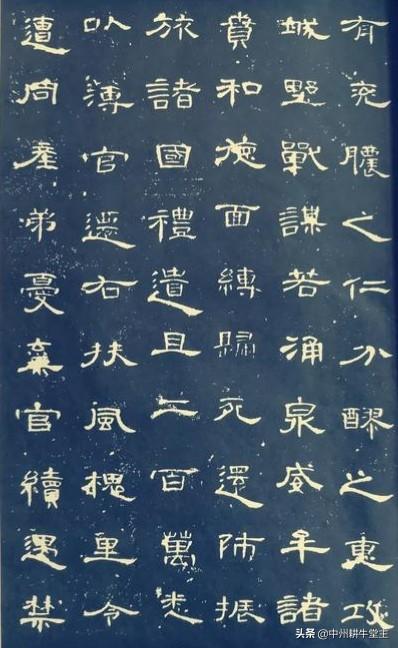 有兗膿之仁分醪之惠攻
城野戰謀若涌泉威牟諸
賁和德面縛歸死還師振
旅諸國禮遺且二百萬悉
以薄官遷右扶風槐里令
遭同產弟憂棄官續遇禁
头条 @中州耕牛堂主